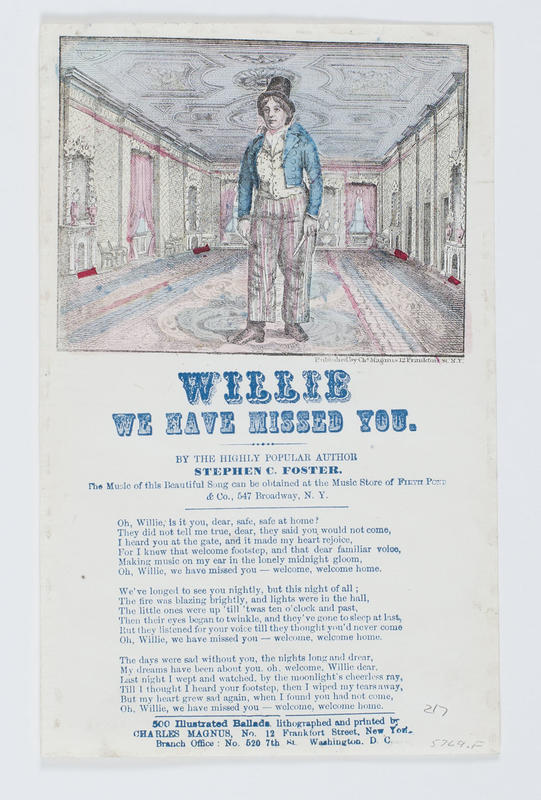 Published by Chs. Magnus 12 Frankfort St. N.Y.
WILLIE
WE HAVE MISSED YOU.
BY THE HIGHLY POPULAR AUTHOR
STEPHEN C. FOSTER.
The Music of this Beautiful Song can be obtained at the Music Store of FIRTH POND
& Co., 547 Broadway, N. Y.
Oh, Willie, is it you, dear, safe, safe at home?
They did not tell me true, dear, they said you would not come,
I heard you at the gate, and it made my heart rejoice,
For I knew that welcome footstep, and that dear familiar voice,
Making music on my ear in the lonely midnight gloom,
Oh, Willie, we have missed you — welcome, welcome home.
We've longed to see you nightly, but this night of all ;
The fire was blazing brightly, and lights were in the hall,
The little ones were up 'till 'twas ten o'clock and past,
Then their eyes began to twinkle, and they've gone to sleep at last,
But they listened for your voice till they thought you'd never come
Oh, Willie, we have missed you — welcome, welcome home.
The days were sad without you, the nights long and drear,
My dreams have been about you. oh, welcome, Willie dear.
Last night I wept and watched, by the moonlight's cheerless ray,
Till I thought I heard your footstep, then I wiped my tears away,
But my heart grew sad again, when I found you had not come,
Oh, Willie, we have missed you — welcome, welcome home.
217
500 Illustrated Ballads, lithographed and printed by
CHARLES MAGNUS, No. 12 Frankfort Street, New York.
Branch Office : No. 520 7th St. Washington, D. C.
5769.F